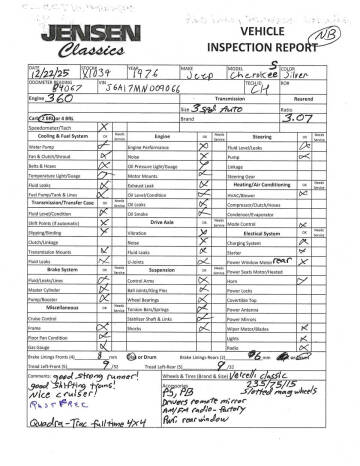 JENSEN
Classics
VEHICLE
INSPECTION REPORT
NB
DATE 12/22/25 STOCK# YEAR 1976 MAKE Jeep MODEL Cherokee S COLOR Silver
ODOMETER READING 84067 VIN J6A17MN009066 TECH CH RO#
Engine 360 Transmission Rearend
Size 3 spd Auto Ratio
Carb 2 BRL or 4 BRL Brand 3.07
Speedometer/Tach
Cooling & Fuel System OK Needs Service
Water Pump
Fan & Clutch/Shroud
Belts & Hoses
Temperature Light/Gauge
Fluid Leaks
Fuel Pump/Tank & Lines
Transmission/Transfer Case OK Needs Service
Fluid Level/Condition
Shift Points (if automatic)
Slipping/Binding
Clutch/Linkage
Transmission Mounts
Fluid Leaks
Brake System OK Needs Service
Fluid/Leaks/Lines
Master Cylinder
Pump/Booster
Miscellaneous OK Needs Service
Cruise Control
Frame
Floor Pan Condition
Gas Gauge
Engine OK Needs Service
Engine Performance
Noise
Oil Pressure Light/Guage
Motor Mounts
Exhaust Leak
Oil Level/Condition
Oil Leaks
Oil Smoke
Drive Axle OK Needs Service
Vibration
Noise
Fluid Leaks
U-Joints
Suspension OK Needs Service
Control Arms
Ball Joints/King Pins
Wheel Bearings
Torsion Bars/Springs
Stabilizer Shaft & Links
Shocks
Steering OK Needs Service
Fluid Level/Leaks
Pump
Linkage
Steering Gear
Heating/Air Conditioning OK Needs Service
HVAC/Blower
Compressor/Clutch/Hoses
Condensor/Evaporator
Mode Control
Electrical System OK Needs Service
Charging System
Starter
Power Window Motor rear
Power Seats Motor/Heated
Horn
Power Locks
Covertible Top
Power Antenna
Power Mirrors
Wiper Motor/Blades
Lights
Radio
Brake Linings Fronts (4) 8 mm Disc or Drum Brake Linings Rears (2) 6 mm
Tread Left-Front (5) 9 /32 Tread Left-Rear (5) 9 /32
Comments: good strong runner!
good shifting trans!
Nice cruiser!
RUST FREE
Quadra-Trac fulltime 4x4
Wheels & Tires (Brand & Size) classic
235/75/15
Accessories slotted mag wheels
PS, PB
Drivers remote mirror
AM/FM radio-factory
Pwr. rear window